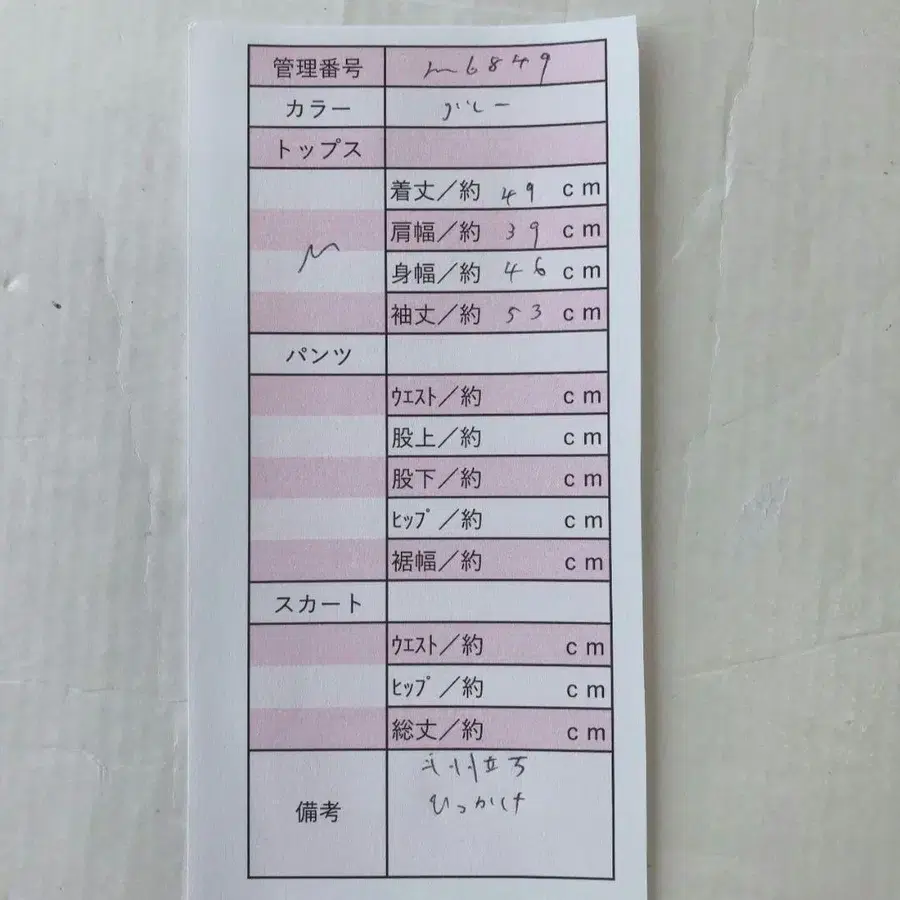 管理番号 m6849
カラー グレー
トップス
着丈／約 49 cm
肩幅／約 39 cm
M
身幅／約 46 cm
袖丈／約 53 cm
パンツ
ｳｴｽﾄ／約 cm
股上／約 cm
股下／約 cm
ﾋｯﾌﾟ／約 cm
裾幅／約 cm
スカート
ｳｴｽﾄ／約 cm
ﾋｯﾌﾟ／約 cm
総丈／約 cm
備考
立ち
ひっかけ